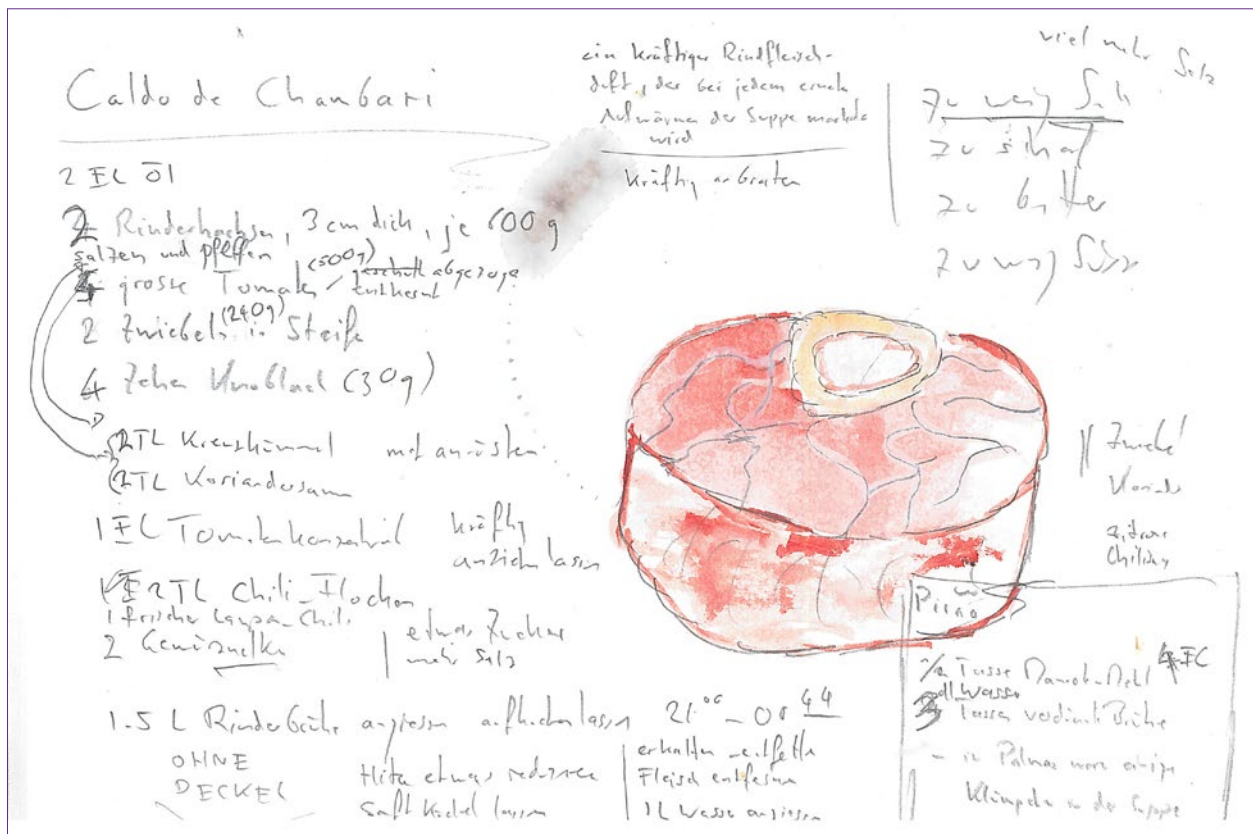 Caldo de Chambari
2 EL Öl
2 Rinderhachsen, 3 cm dick, je 600 g
salzen und pfeffern
4 grosse Tomaten (500g) / geschält abgezogen
entkernt
2 Zwiebeln (240g) in Streifen
4 Zehen Knoblauch (30g)
2TL Kreuzkümmel mit anrösten
2TL Koriandersamen
1 EL Tomatenkonzentrat kräftig
anziehen lassen
2TL Chili-Flocken
1 frischer Chili
2 Gewürznelken
etwas Zucker
mehr Salz
1.5 L Rinderbrühe angiessen aufkochen lassen
OHNE
DECKEL
Hitze etwas reduzieren
sanft köcheln lassen
21:06 - 00 44
erkalten entfetten
Fleisch entfernen
1L Wasser angiessen
ein kräftiger Rindfleisch-
duft, der bei jedem
Aufwärmen der Suppe
wird
kräftig anbraten
viel mehr Salz
zu wenig Salz
zu scharf
zu bitter
zu wenig Süsse
Zwiebel
Koriander
Pirão
1/2 Tasse Maniok-Mehl 4 EL
dl Wasser
3 Tassen verdünnte Brühe
- in Palmas waren einige
Klümpchen in der Suppe